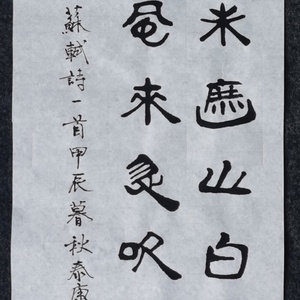 未遮山白
風來忽吹
蘇軾詩一首甲辰暮秋泰康